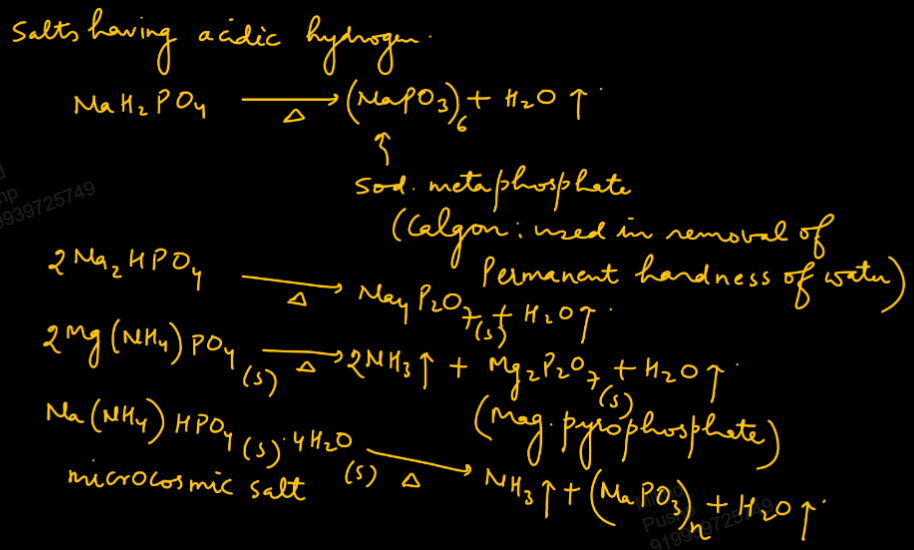 Salts having acidic hydrogen.
NaH₂PO₄ —Δ→ (NaPO₃)₆ + H₂O ↑
↑
Sod. metaphosphate
(Calgon : used in removal of
Permanent hardness of water)
2Na₂HPO₄ —Δ→ Na₄P₂O₇(s) + H₂O↑
2Mg(NH₄)PO₄(s) —Δ→ 2NH₃↑ + Mg₂P₂O₇(s) + H₂O↑
(Mag. pyrophosphate)
Na(NH₄)HPO₄(s)·4H₂O(s) —Δ→ NH₃↑ + (NaPO₃)ₙ + H₂O↑
microcosmic salt
919939725749